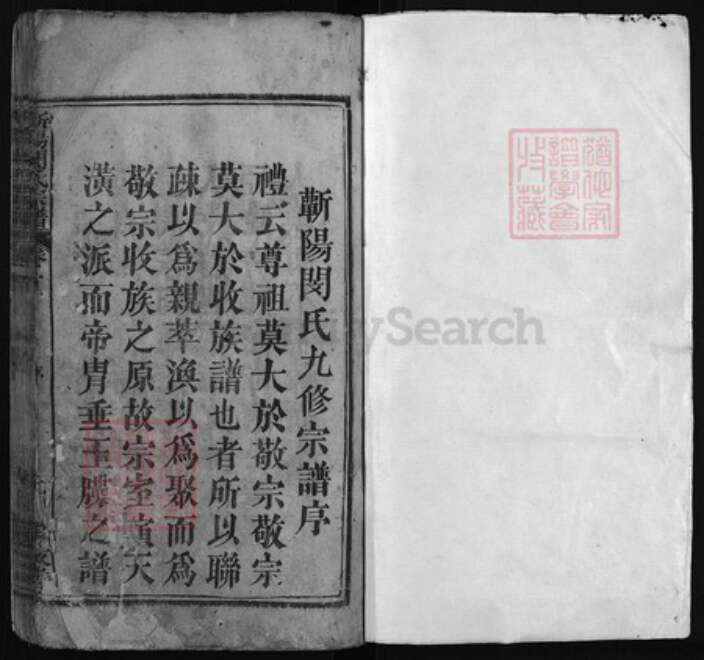 蘄陽閔氏九修宗譜序
禮云尊祖莫大於敬宗敬宗
莫大於收族譜也者所以聯
疎以為親萃渙以為聚而為
敬宗收族之原故宗室演天
潢之派而帝胄垂玉牒之譜
ySearch